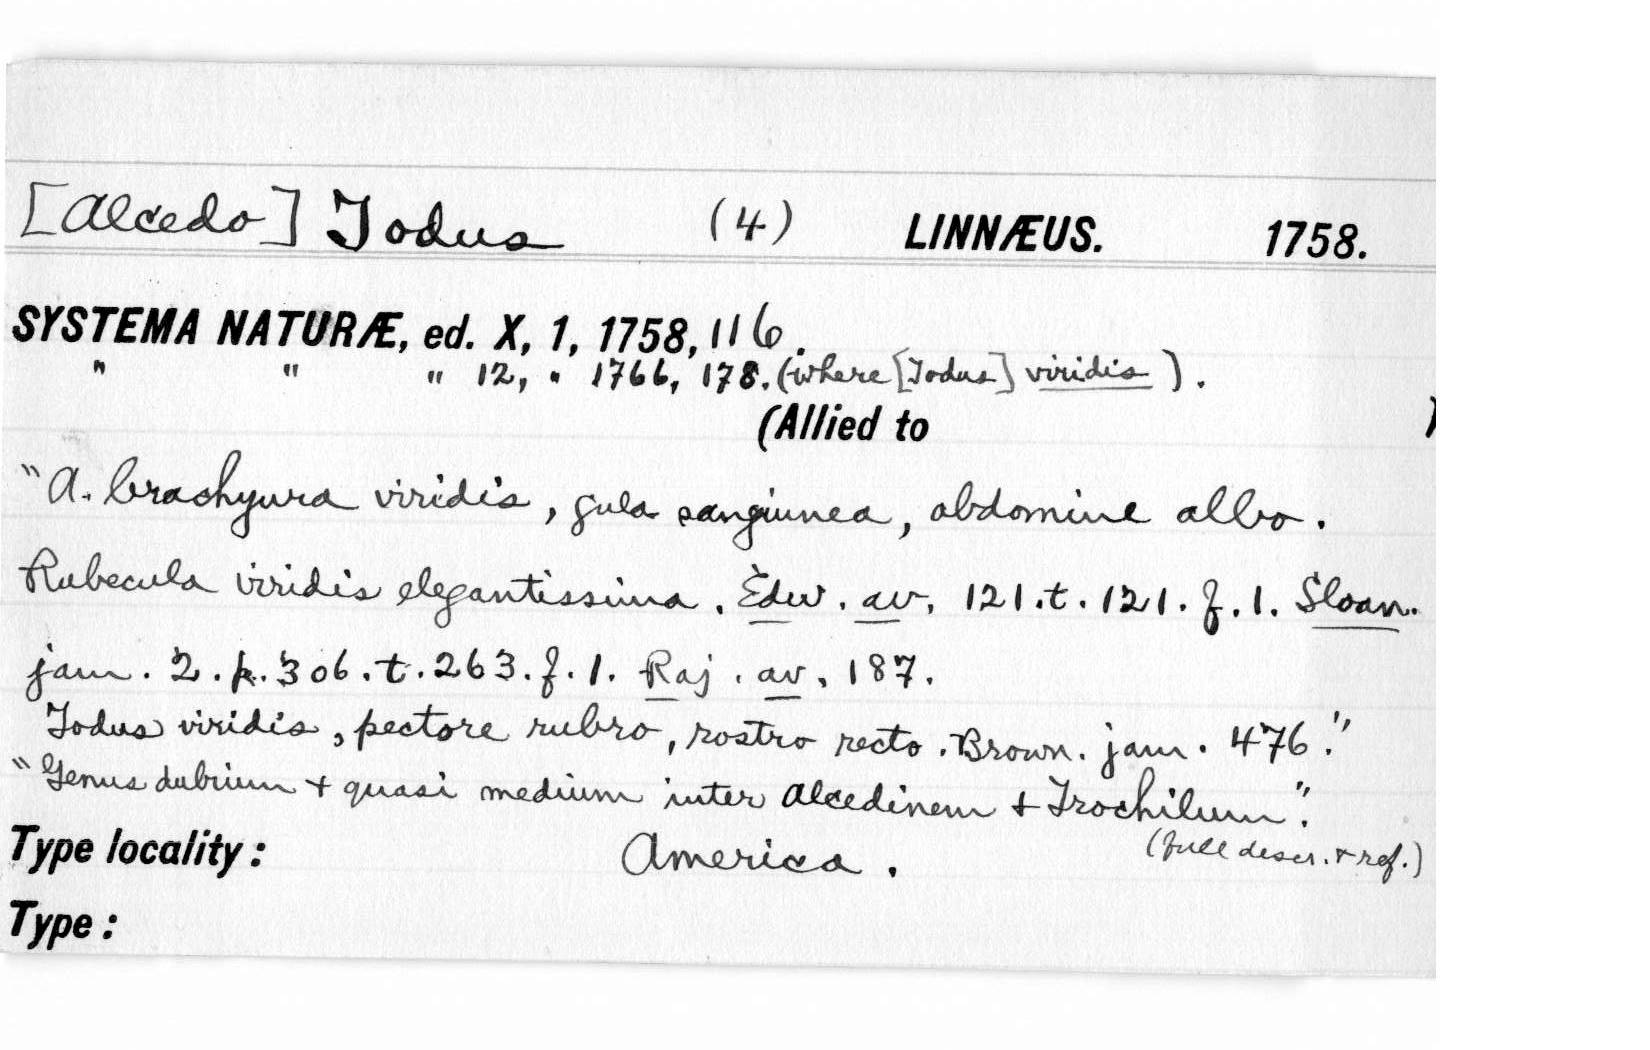 [Alcedo] Todus (4) LINNÆUS. 1758.
SYSTEMA NATURÆ, ed. X, 1, 1758, 116.
" " " 12, " 1766, 178. (where [Todus] viridis).
(Allied to )
"A. brachyura viridis, gula sangiunea, abdomine albo.
Rubecula viridis elegantissima. Edw. av. 121. t. 121. f. 1. Sloan.
jam. 2. p. 306. t. 263. f. 1. Raj. av. 187.
Todus viridis, pectore rubro, rostro recto. Brown. jam. 476."
"Genus dubium + quasi medium inter Alcedinem + Trochilum".
(full descr. + ref.)
Type locality: America.
Type: